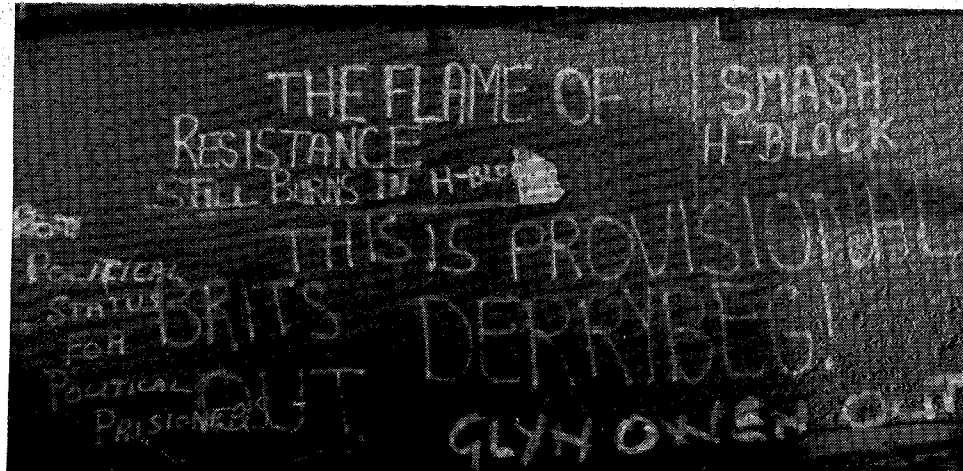 THE FLAME OF
RESISTANCE
STILL BURNS IN H-BLOCK
SMASH
H-BLOCK
THIS IS PROVISIONAL
DERRYBEG!
POLITICAL
STATUS
FOR
POLITICAL
PRISIONERS
BRITS
OUT
GLYN OWEN OUT